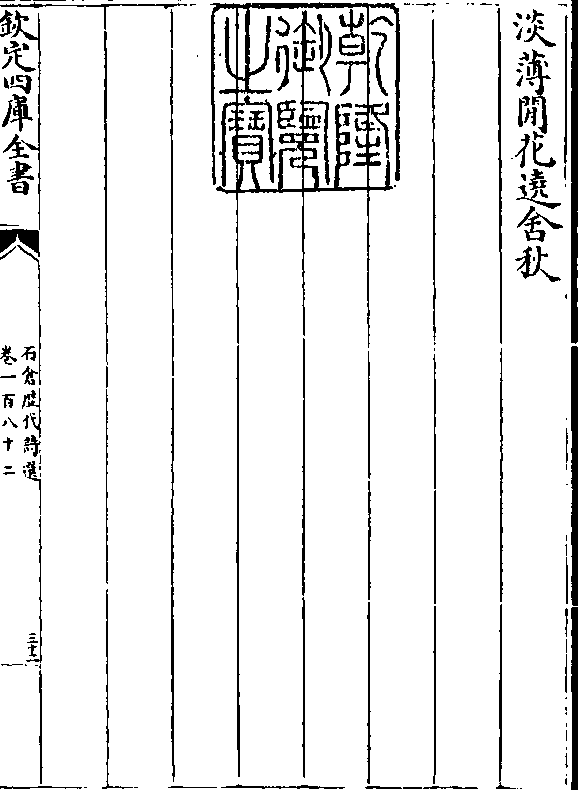 淡薄閒花遶舍秋
乾隆
御覽
之寶
欽定四庫全書
石倉歴代詩選
卷一百八十二
三十二